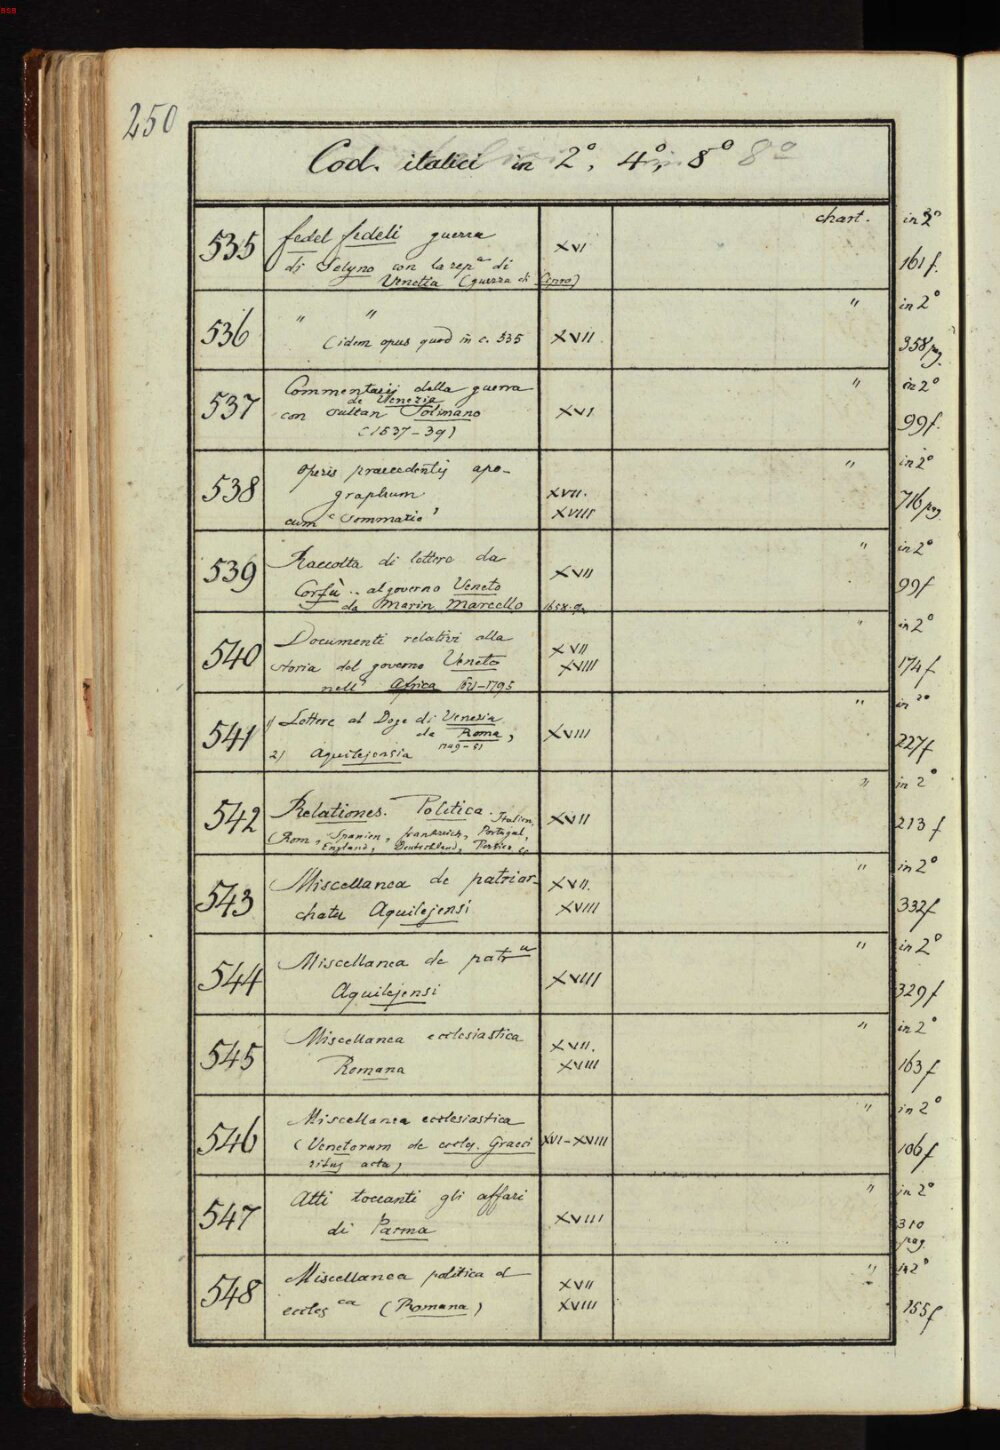 BSB
250
Cod. italici in 2°, 4°, 8° 8°
535 Fedel Fedeli guerra XVI chart. in 2°
di Selyno con la repca di 161 f.
Venetia (guerra di Cipro)
536 " " XVII " in 2°
(idem opus quod in c. 535 358 pag.
537 Commentarij della guerra XVI " in 2°
de Venezia
con Sultan Solimano 99 f.
(1537-39)
538 Operis praecedentis apo- XVII. " in 2°
graphum XVIII 716 pag.
cum "Sommario"
539 Raccolta di lettere da XVII " in 2°
Corfù .. al governo Veneto 99 f
da Marin Marcello 1658
540 Documenti relativi alla XVII " in 2°
storia del governo Veneto XVIII 174 f
nell' Africa -1795
541 1) Lettere al Doge di Venezia XVIII " in 2°
da Roma, 227 f
1749-51
2) Aquilejensia
542 Relationes. Politica. Italien, XVII " in 2°
(Rom, Spanien, Frankreich, Portugal, 213 f
England, Deutschland,
543 Miscellanea de patriar- XVII. " in 2°
chatu Aquilejensi XVIII 332 f
544 Miscellanea de patru XVIII " in 2°
Aquilejensi 329 f
545 Miscellanea ecclesiastica XVII. " in 2°
Romana XVIII 163 f
546 Miscellanea ecclesiastica " in 2°
(Venetorum de eccles. Graeci XVI-XVIII 106 f
ritus acta)
547 Atti toccanti gli affari XVIII " in 2°
di Parma 310
pag.
548 Miscellanea politica et XVII " in 2°
eccles ca (Romana) XVIII 155 f